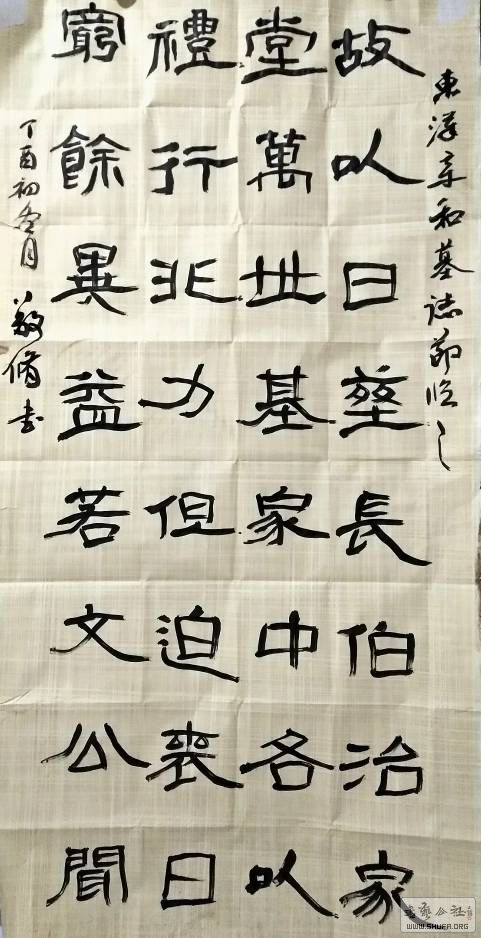 東漢章和墓誌節臨之
故以日長伯治家
堂萬世基家中各以
禮行北力但迫喪日
窮餘異益若文公聞
丁酉初月 脩書
書藝公社
WWW.SHUFA.ORG